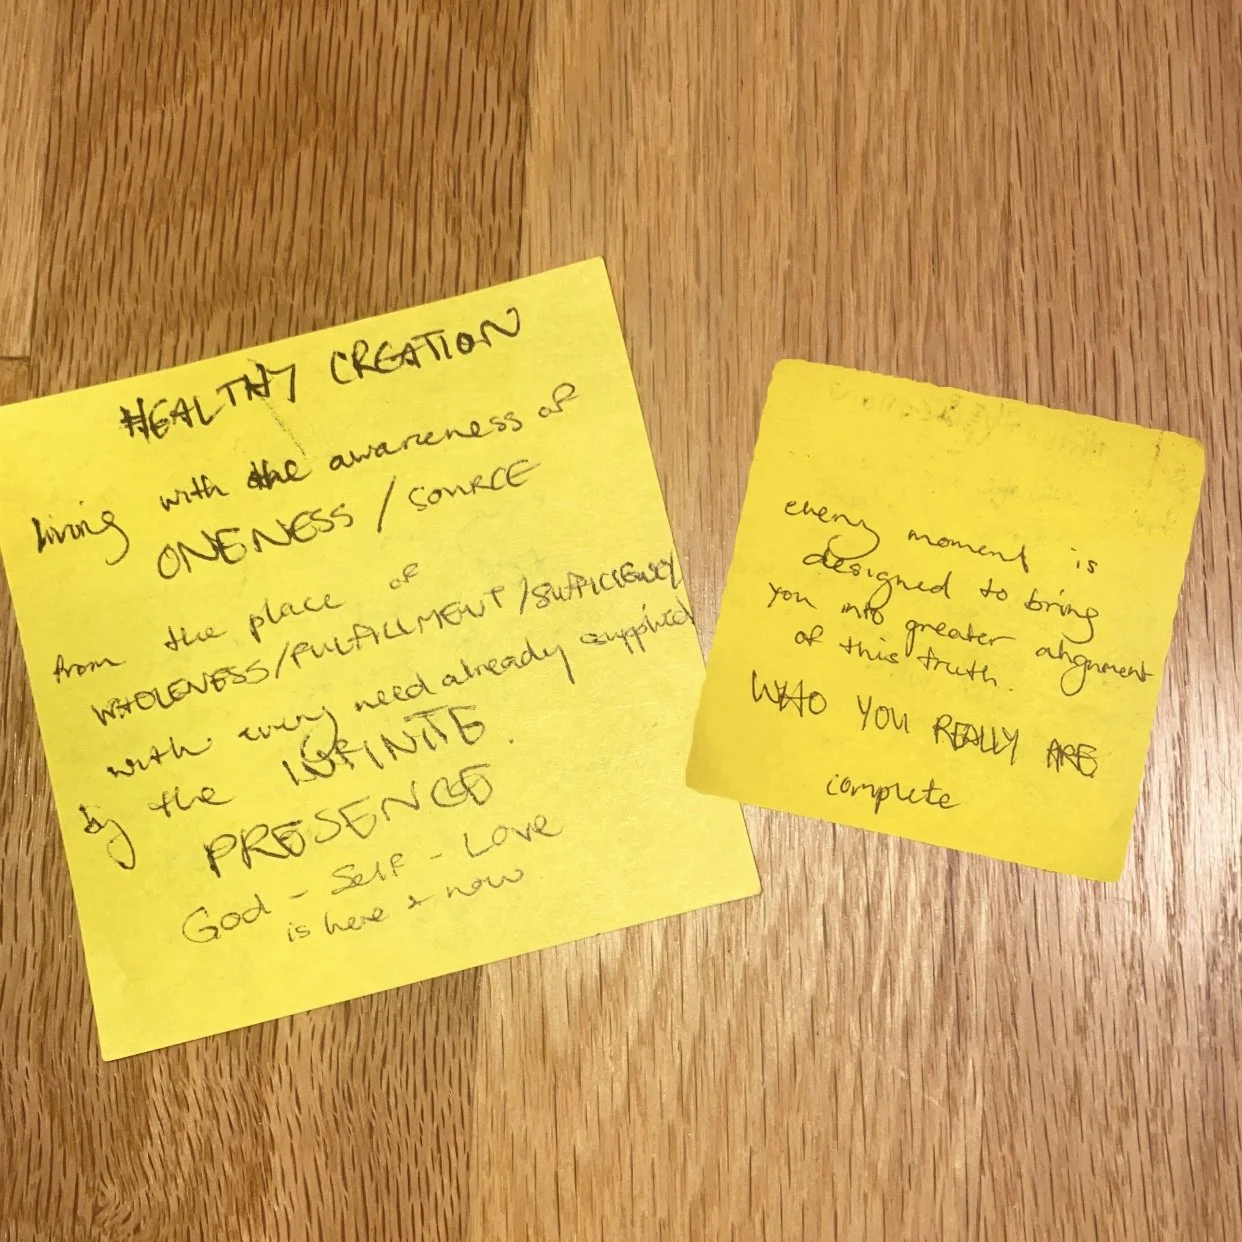 HEALTHY CREATION
living with the awareness of
ONENESS / SOURCE
from the place of
WHOLENESS/FULFILLMENT/SUFFICIENCY
with every need already supplied
by the INFINITE
PRESENCE.
God - Self - Love
is here + now
every moment is
designed to bring
you into greater alignment
of this truth.
WHO YOU REALLY ARE
complete